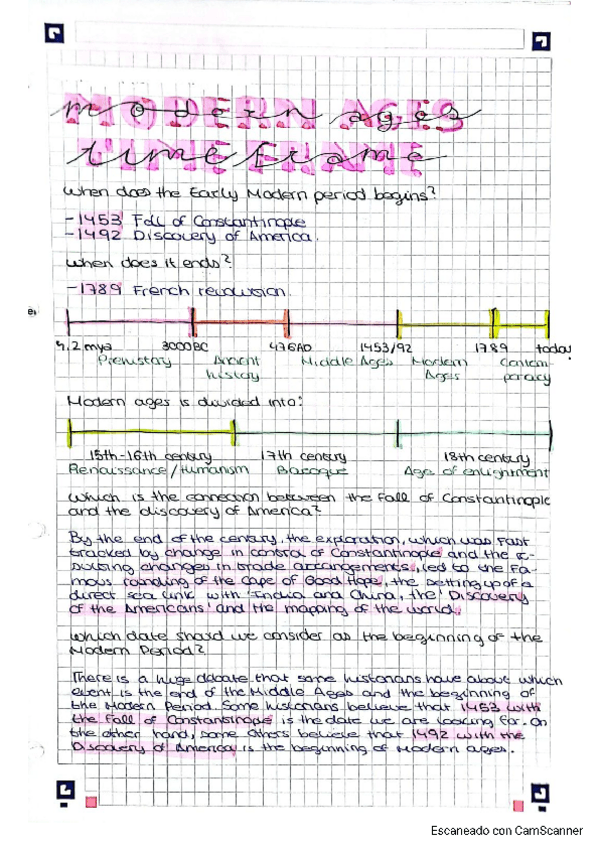 modern ages
time frame
When does the Early Modern period begins?
-1453 Fall of Constantinople
-1492 Discovery of America.
When does it ends?
-1789 French revolution.
4.2 mya 3000BC 476AD 1453/92 1789 today
Prehistory Ancient history Middle Ages Modern Ages Contemporacy
Modern ages is divided into:
15th-16th century 17th century 18th century
Renaissance/Humanism Baroque Age of enlightment
Which is the connection between the Fall of Constantinople
and the discovery of America?
By the end of the century, the exploration, which was fast
tracked by change in control of Constantinople and the re-
sulting changes in trade arrangements, led to the fa-
mous rounding of the Cape of Good Hope, the setting up of a
direct sea link with India and China, the 'Discovery
of the Americans' and the mapping of the world.
Which date should we consider as the beginning of the
Modern Period?
There is a huge debate that some historians have about which
event is the end of the Middle Ages and the beginning of
the Modern Period. Some historians believe that 1453 with
the Fall of Constantinople is the date we are looking for. On
the other hand, some others believe that 1492 with the
Discovery of America is the beginning of Modern ages.
Escaneado con CamScanner